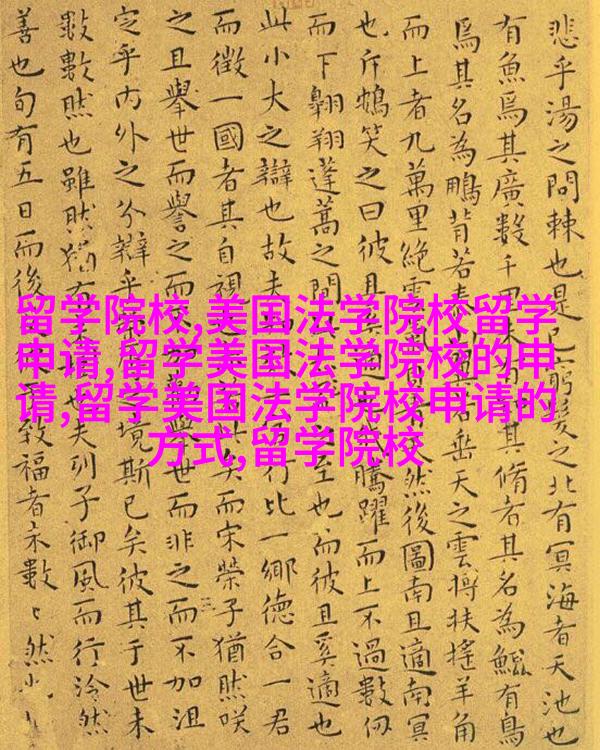 悲乎湯之問棘也是已窮髮之北有冥海者天池也
有魚焉其廣數千里未有其脩者其名為鯤有鳥
焉其名為鵬背若泰翼若垂天之雲摶扶搖羊角
而上者九萬里絕雲氣負然後圖南且適南冥
也斥鴳笑之曰彼且奚適也我騰躍而上不過數仞
而下翱翔蓬蒿之間之至也而彼且奚適也
此小大之辯也故夫一行比一鄉德合一君
而徵一國者其自視此矣而宋榮子猶然咲
之且舉世而譽之而不加舉世而非之而不加沮
定乎內外之分辯乎榮之境斯已矣彼其于世未
數數然也雖然猶有未也夫列子御風而行泠然
善也旬有五日而後致福者未數〻然也
留学院校,美国法学院校留学
申请,留学美国法学院校的申
请,留学美国法学院校申请的
方式,留学院校